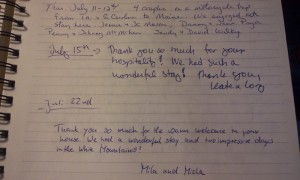 From July 11-12th 4 couples on a motorcycle trip
from TN + S. Carolina to Maine. We enjoyed our
stay here
Penny + Johnny McMahan Sandy + David
July 15th → Thank you so much for your
hospitality! We had such a
wonderful stay! Thanks
Jul. 22nd
Thank you so much for the warm welcome in your
house. We had a wonderful stay and two impressive days
in the White Mountains!
Mila and